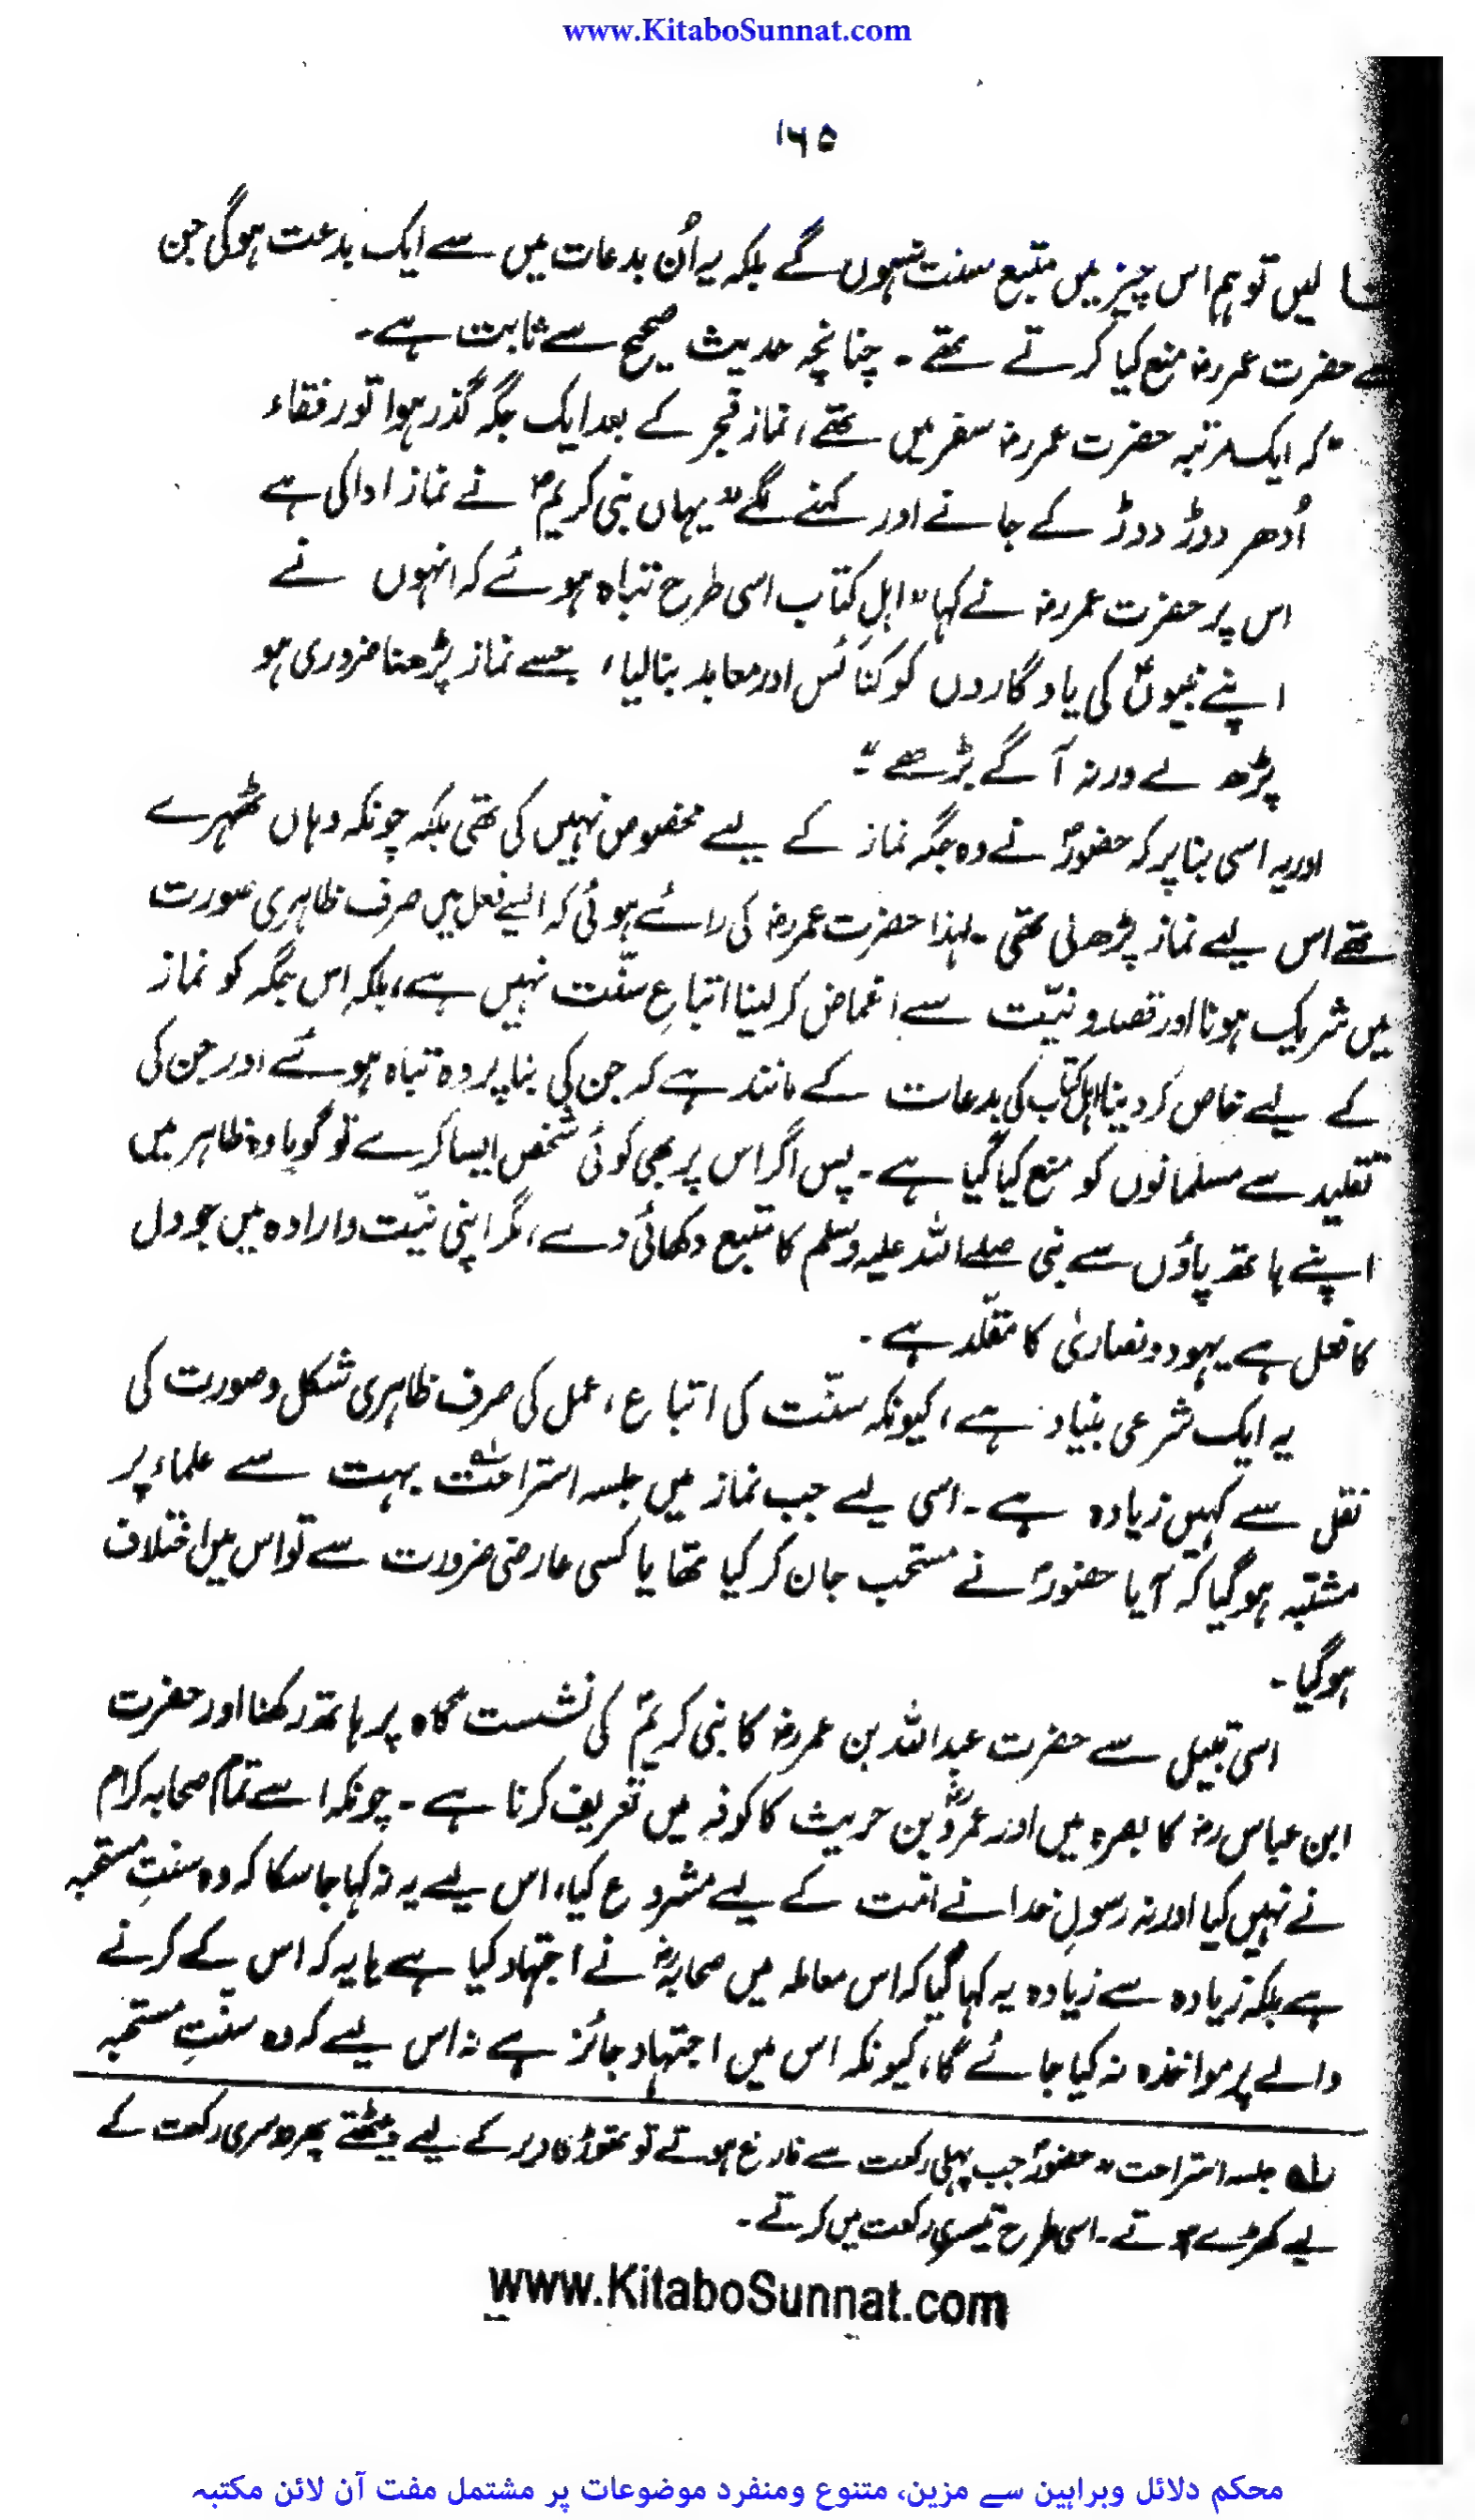 www.KitaboSunnat.com
۱۶۵
لیں تو ہم اس چیز میں متبع سنت نہ ہوں گے بلکہ یہ اُن بدعات میں سے ایک بدعت ہوگی جن
سے حضرت عمر رضہ منع کیا کرتے تھے ۔ چنانچہ حدیث صحیح سے ثابت ہے۔
"کہ ایک مرتبہ حضرت عمر رضہ سفر میں تھے، نماز فجر کے بعد ایک جگہ گذر ہوا تو رفقاء
اُدھر دوڑ دوڑ کے جانے اور کہنے لگے "یہاں نبی کریمؐ نے نماز ادا کی ہے
اس پر حضرت عمر رضہ نے کہا "اہلِ کتاب اسی طرح تباہ ہوئے کہ انہوں نے
اپنے نبیوںؑ کی یادگاروں کو کنائس اور معابد بنا لیا، جسے نماز پڑھنا ضروری ہو
پڑھ لے ورنہ آگے بڑھے"۔
اور یہ اسی بنا پر کہ حضورؐ نے وہ جگہ نماز کے لیے مخصوص نہیں کی تھی بلکہ چونکہ وہاں ٹھہرے
تھے اس لیے نماز پڑھ لی تھی ۔ لہذا حضرت عمر رضہ کی رائے ہوئی کہ ایسے فعل میں صرف ظاہری صورت
میں شریک ہونا اور قصد و نیّت سے اغماض کر لینا اتباعِ سنّت نہیں ہے، بلکہ اس جگہ کو نماز
کے لیے خاص کر دینا اہل کتاب کی بدعات کے مانند ہے کہ جن کی بنا پر وہ تباہ ہوئے اور جن کی
تقلید سے مسلمانوں کو منع کیا گیا ہے ۔ پس اگر اس پر بھی کوئی شخص ایسا کرے تو گویا وہ ظاہر میں
اپنے ہاتھ پاؤں سے نبی صلے اللہ علیہ وسلم کا متبع دکھائی دے، مگر اپنی نیّت و ارادہ میں جو دل
کا فعل ہے یہود و نصاریٰ کا مقلّد ہے ۔
یہ ایک شرعی بنیاد ہے، کیونکہ سنّت کی اتباع، عمل کی صرف ظاہری شکل و صورت کی
نقل سے کہیں زیادہ ہے ۔ اسی لیے جب نماز میں جلسہ استراحتؔ۱ بہت سے علماء پر
مشتبہ ہوگیا کہ آیا حضورؐ نے مستحب جان کر کیا تھا یا کسی عارضی ضرورت سے تو اس میں اختلاف
ہوگیا ۔
اسی قبیل سے حضرت عبداللہ بن عمر رضہ کا نبی کریمؐ کی نشست گاہ پر ہاتھ رکھنا اور حضرت
ابن عباس رضہ کا بصرہ میں اور عمروؓ بن حریث کا کوفہ میں تعریف کرنا ہے ۔ چونکہ اسے تمام صحابہ کرام
نے نہیں کیا اور نہ رسولِ خدا نے امّت کے لیے مشروع کیا، اس لیے یہ نہ کہا جا سکا کہ وہ سنتِ مستحبہ
ہے بلکہ زیادہ سے زیادہ یہ کہا گیا کہ اس معاملہ میں صحابہؓ نے اجتہاد کیا ہے یا یہ کہ اس کے کرنے
والے پر مواخذہ نہ کیا جائے گا، کیونکہ اس میں اجتہاد جائز ہے نہ اس لیے کہ وہ سنتِ مستحبہ
۱ جلسہ استراحت" حضورؐ جب پہلی رکعت سے فارغ ہوتے تو تھوڑی دیر کے لیے بیٹھتے پھر دوسری رکعت کے
لیے کھڑے ہوتے ۔ اسی طرح تیسری رکعت میں کرتے ۔
www.KitaboSunnat.com
محکم دلائل وبراہین سے مزین، متنوع ومنفرد موضوعات پر مشتمل مفت آن لائن مکتبہ